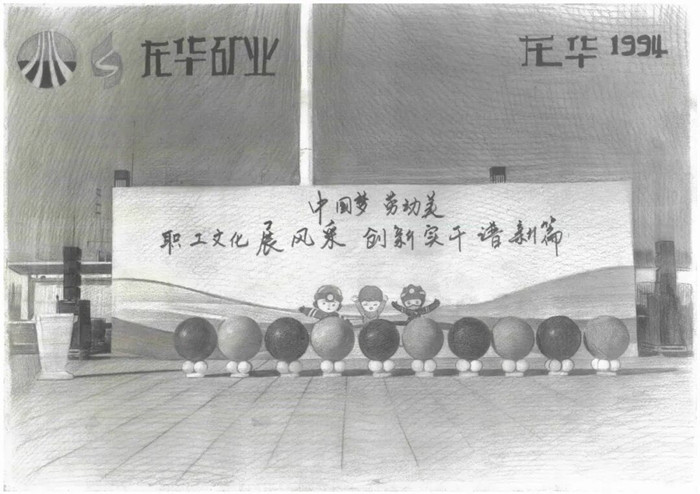 龙华矿业
龙华 1994
中国梦 劳动美
职工文化展风采 创新实干谱新篇